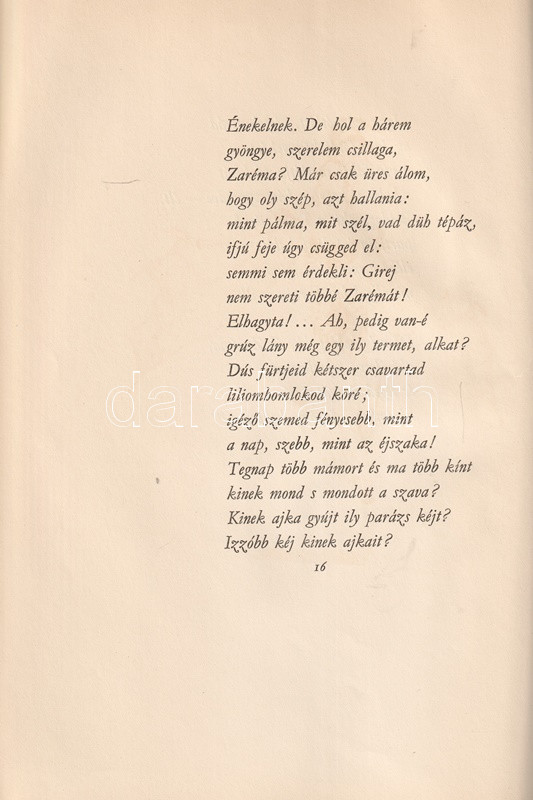 Énekelnek. De hol a hárem
gyöngye, szerelem csillaga,
Zaréma? Már csak üres álom,
hogy oly szép, azt hallania:
mint pálma, mit szél, vad düh tépáz,
ifjú feje úgy csügged el:
semmi sem érdekli: Girej
nem szereti többé Zarémát!
Elhagyta!... Ah, pedig van-é
grúz lány még egy ily termet, alkat?
Dús fürtjeid kétszer csavartad
liliomhomlokod köré;
igéző szemed fényesebb, mint
a nap, szebb, mint az éjszaka!
Tegnap több mámort és ma több kínt
kinek mond s mondott a szava?
Kinek ajka gyújt ily parázs kéjt?
Izzóbb kéj kinek ajkait?
16
darabanth